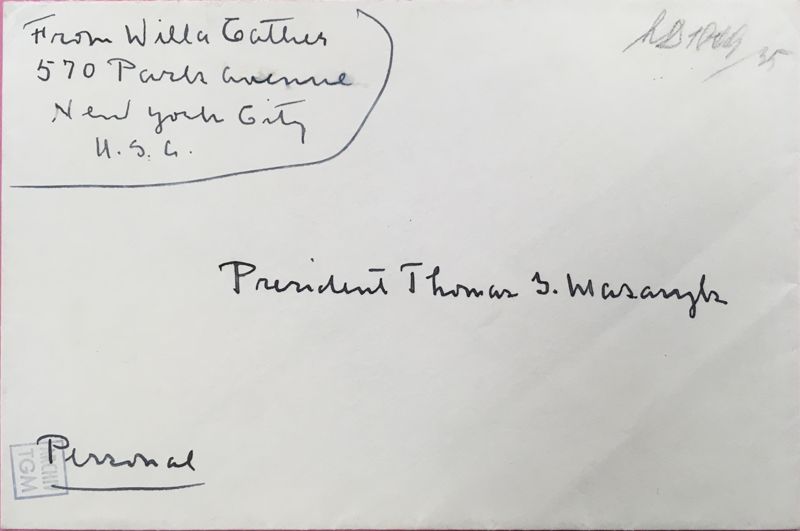 From Willa Cather
570 Park avenue
New York City
U. S. A.
President Thomas G. Masaryk
Personal
ARCHIV
TGM